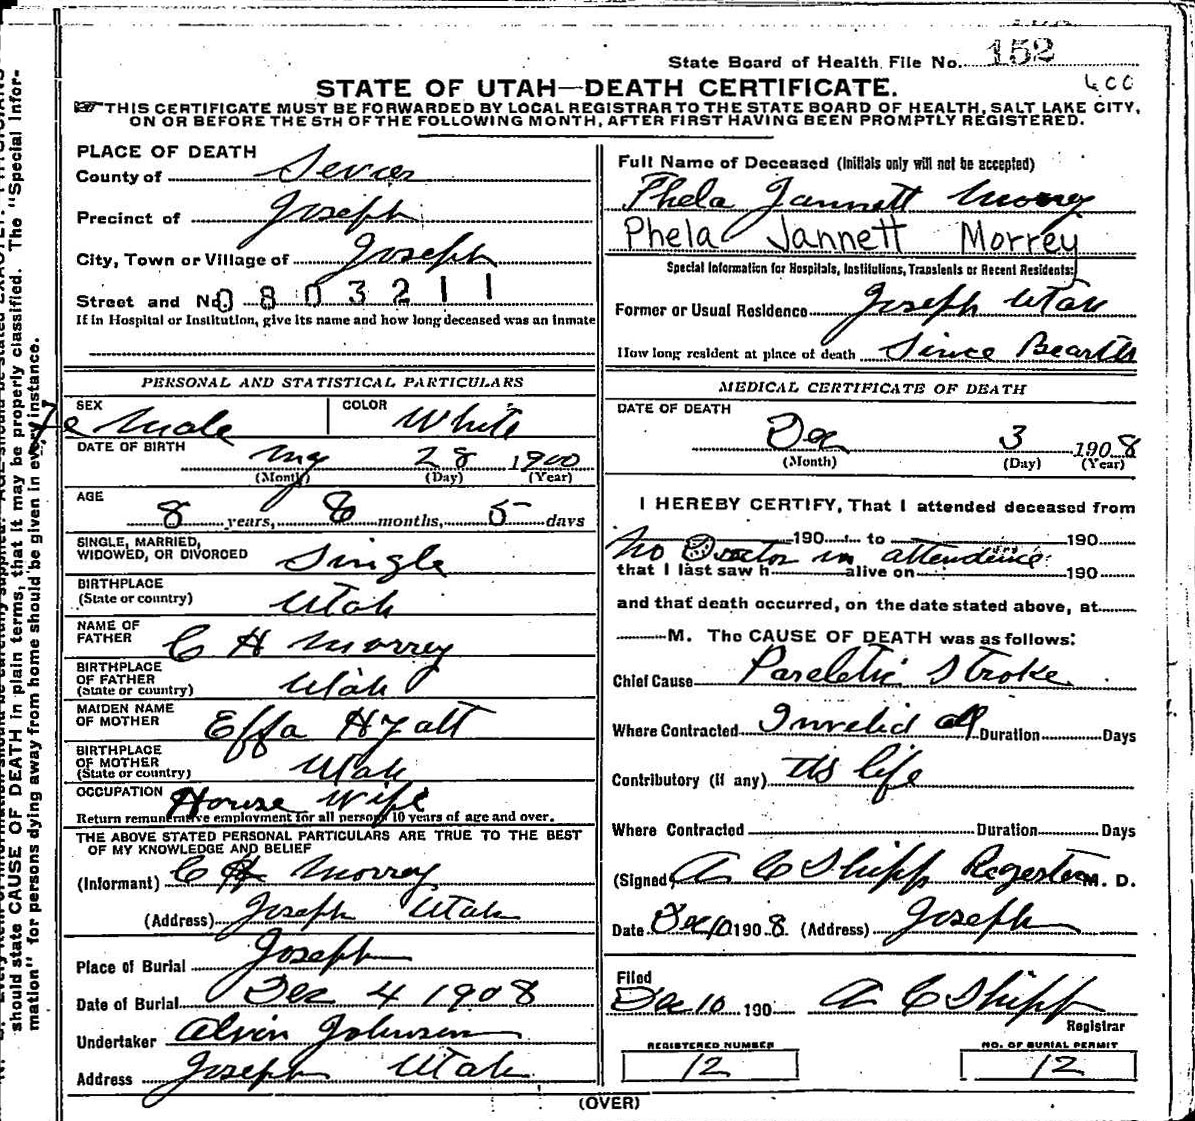 State Board of Health File No. 152
STATE OF UTAH—DEATH CERTIFICATE.
400
THIS CERTIFICATE MUST BE FORWARDED BY LOCAL REGISTRAR TO THE STATE BOARD OF HEALTH, SALT LAKE CITY,
ON OR BEFORE THE 5TH OF THE FOLLOWING MONTH, AFTER FIRST HAVING BEEN PROMPTLY REGISTERED.
PLACE OF DEATH
County of Sevier
Precinct of Joseph
City, Town or Village of Joseph
Street and No. 0803211
If in Hospital or Institution, give its name and how long deceased was an inmate
PERSONAL AND STATISTICAL PARTICULARS
SEX COLOR
fe Male White
DATE OF BIRTH
My 28 1900
(Month) (Day) (Year)
AGE
8 years, 6 months, 5 days
SINGLE, MARRIED,
WIDOWED, OR DIVORCED Single
BIRTHPLACE
(State or country) Utah
NAME OF
FATHER C H Morrey
BIRTHPLACE
OF FATHER
(State or country) Utah
MAIDEN NAME
OF MOTHER Effa Hyatt
BIRTHPLACE
OF MOTHER
(State or country) Utah
OCCUPATION House Wife
Return remunerative employment for all persons 10 years of age and over.
THE ABOVE STATED PERSONAL PARTICULARS ARE TRUE TO THE BEST
OF MY KNOWLEDGE AND BELIEF
(Informant) C H Morrey
(Address) Joseph Utah
Place of Burial Joseph
Date of Burial Dec 4 1908
Undertaker Alvin Johnson
Address Joseph Utah
Full Name of Deceased (Initials only will not be accepted)
Phela Jannett Morrey
Phela Jannett Morrey
Special Information for Hospitals, Institutions, Transients or Recent Residents:
Former or Usual Residence Joseph Utah
How long resident at place of death Since Bearth
MEDICAL CERTIFICATE OF DEATH
DATE OF DEATH
Dec 3 1908
(Month) (Day) (Year)
I HEREBY CERTIFY, That I attended deceased from
190 to 190
No Doctor in attendence
that I last saw h alive on 190
and that death occurred, on the date stated above, at
M. The CAUSE OF DEATH was as follows:
Chief Cause Pareletic Stroke
Where Contracted Invelid all Duration Days
Contributory (if any) its life
Where Contracted Duration Days
(Signed) A C Shipp Regester M. D.
Date Dec 10 1908. (Address) Joseph
Filed
Dec 10 190 A C Shipp
Registrar
REGISTERED NUMBER
12
NO. OF BURIAL PERMIT
12
(OVER)
should state CAUSE OF DEATH in plain terms, that it may be properly classified. The "Special Infor-
mation" for persons dying away from home should be given in every instance.